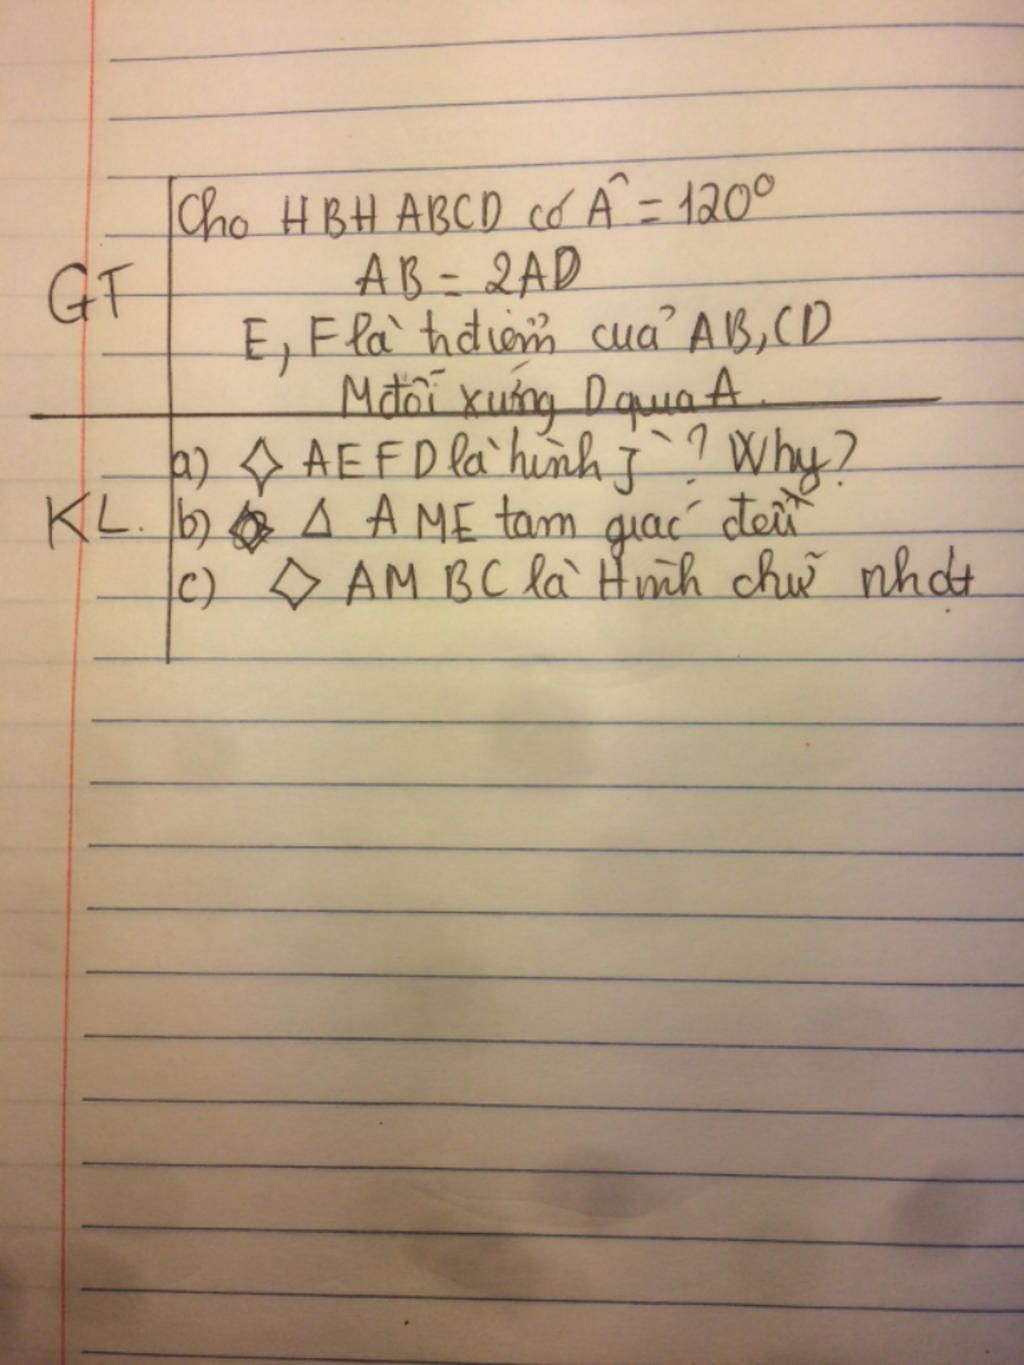 Cho HBH ABCD có Â = 120°
AB = 2AD
GT
E, F là tđiểm của AB, CD
M đối xứng D qua A.
a) ◇ AEFD là hình j̀ ? Why?
KL. b) Δ AME tam giác đều
c) ◇ AMBC là Hình chữ nhật